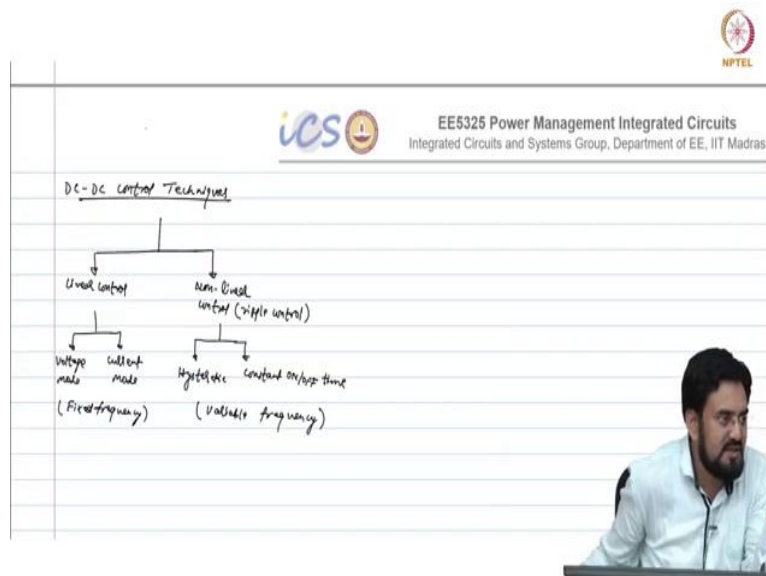 NPTEL
iCS
EE5325 Power Management Integrated Circuits
Integrated Circuits and Systems Group, Department of EE, IIT Madras
DC-DC control Techniques
Linear control
Non-linear
control (ripple control)
Voltage
mode
current
mode
Hysteretic
constant ON/OFF time
(Fixed frequency)
(variable frequency)